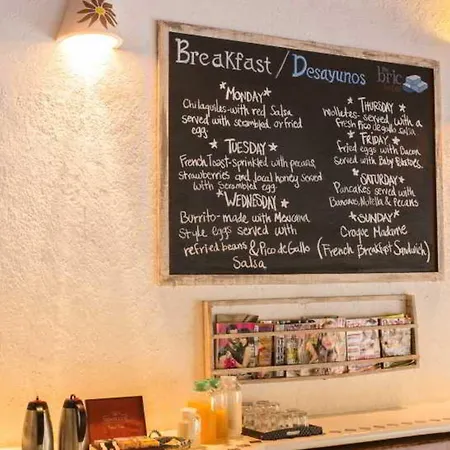 Breakfast / Desayunos
Bric
*Monday*
Chilaquiles-with red Salsa
served with scrambled or fried
egg.
*Tuesday*
French Toast-sprinkled with pecans,
strawberries and local honey served
with Scrambled egg.
*Wednesday*
Burrito-made with Mexicana
style eggs served with
refried beans & Pico de Gallo
Salsa
*Thursday*
Molletes-served with a
Fresh Pico de gallo salsa.
*Friday*
Fried eggs with Bacon
Served with Baby Potatoes.
*Saturday*
Pancakes served with
Bananas, Nutella & Pecans
*Sunday*
Croque Madame
(French Breakfast Sandwich)